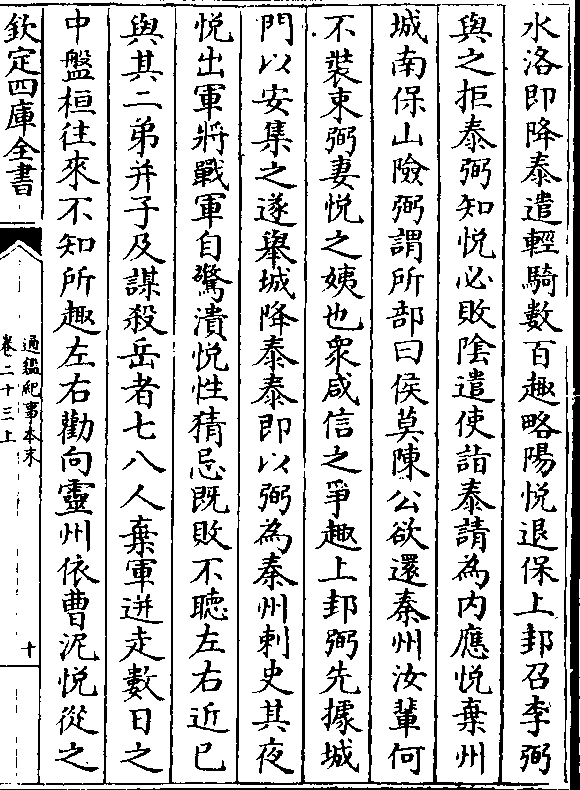 水洛即降泰遣輕騎數百趣略陽悦退保上邽召李弼
與之拒泰弼知悦必敗隂遣使詣泰請為内應悦棄州
城南保山險弼謂所部曰侯莫陳公欲還秦州汝輩何
不裝束弼妻悦之姨也衆咸信之爭趣上邽弼先據城
門以安集之遂舉城降泰泰即以弼為秦州刺史其夜
悦出軍將戰軍自驚潰悦性猜忌既敗不聽左右近已
與其二弟并子及謀殺岳者七八人棄軍迸走數日之
中盤桓往來不知所趣左右勸向靈州依曹泥悦從之
欽定四庫全書
通鑑紀事本末
卷二十三上
十